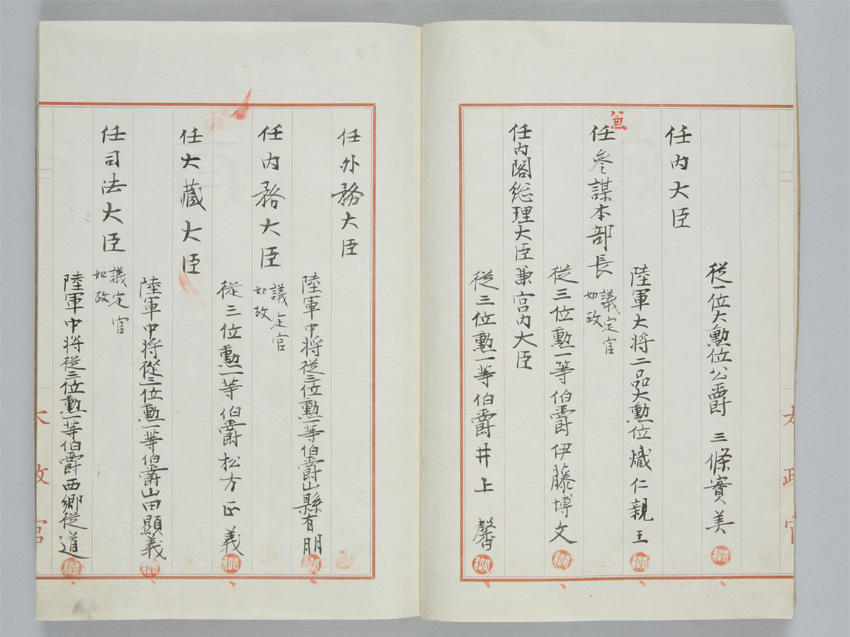 太政官
從一位大勲位公爵 三條實美
任内大臣
陸軍大将二品大勲位熾仁親王
兼
任参謀本部長
議定官
如故
從三位勲一等伯爵伊藤博文
任内閣総理大臣兼宮内大臣
從三位勲一等伯爵井上 馨
任外務大臣
陸軍中将從三位勲一等伯爵山縣有朋
任内務大臣
議定官
如故
從三位勲一等伯爵松方正義
任大蔵大臣
陸軍中将從三位勲一等伯爵山田顯義
任司法大臣
議定官
如故
陸軍中将從三位勲一等伯爵西郷從道
太政官